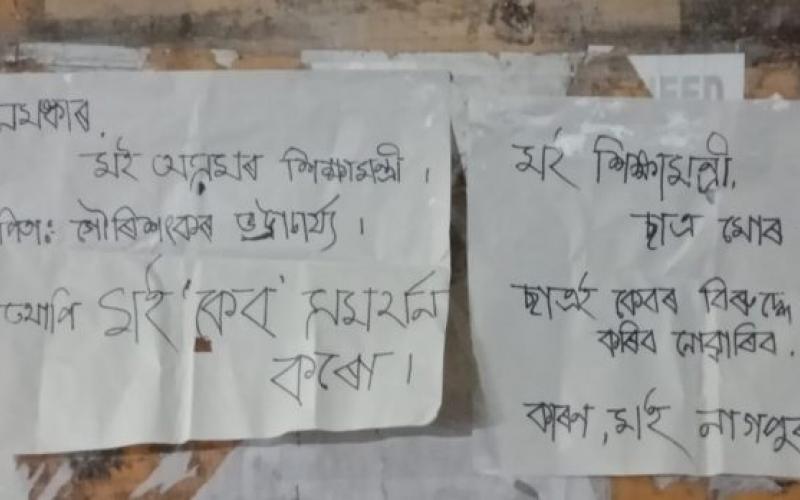 নমস্কাৰ,
মই অসমৰ শিক্ষামন্ত্ৰী ।
পিতাঃ গৌৰিশংকৰ ভট্টাচাৰ্য্য ।
তথাপি মই 'কেব' সমৰ্থন
কৰো ।
মই শিক্ষামন্ত্ৰী,
ছাত্ৰ মোৰ
ছাত্ৰই কেবৰ বিৰুদ্ধে
কৰিব নোৱাৰিব .
কাৰণ, মই নাগপুৰ